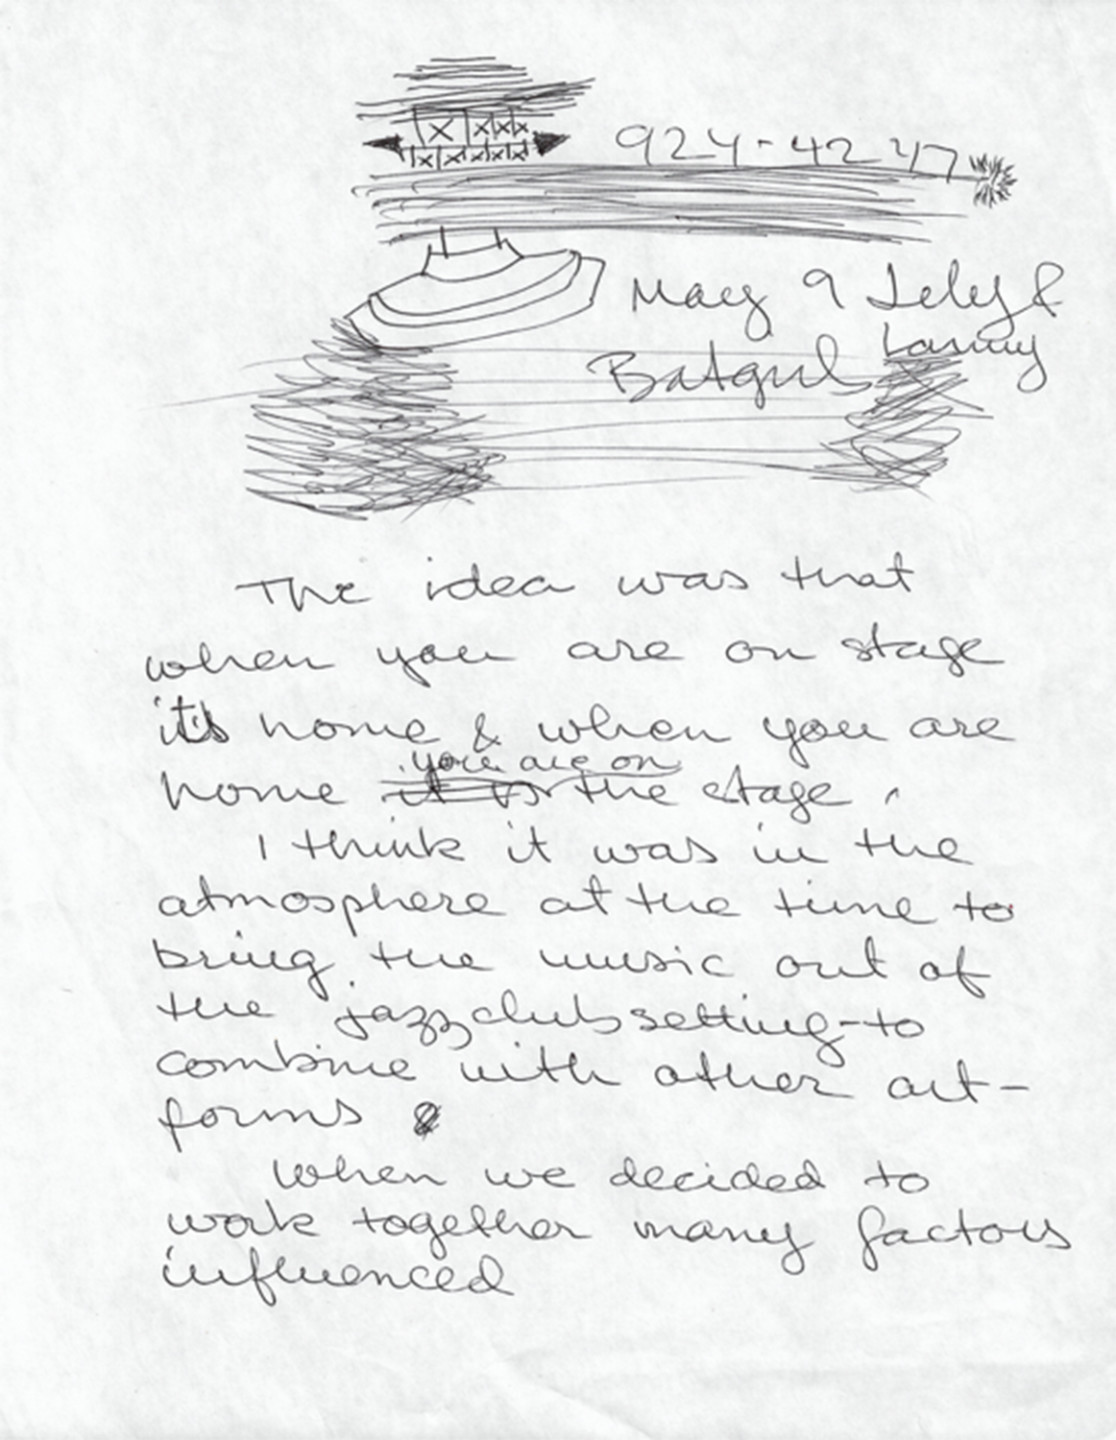 924-4247
May 9 Lely &
Lanny
Batgirl
The idea was that
when you are on stage
it's home & when you are
you are on
home it is the stage.
I think it was in the
atmosphere at the time to
bring the music out of
the jazz club setting-to
combine with other art-
forms
When we decided to
work together many factors
influenced